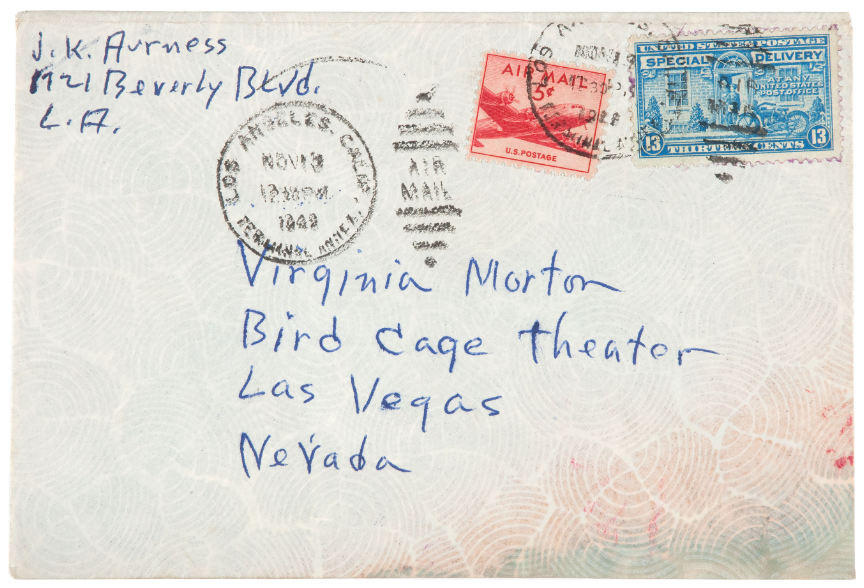 J.K. Aurness
1921 Beverly Blvd.
L.A.
LOS ANGELES, CALIF.
NOV 13
12 PM
1949
TERMINAL ANNEX
AIR
MAIL
AIR MAIL
5¢
U.S. POSTAGE
UNITED STATES POSTAGE
SPECIAL DELIVERY
AT ANY
UNITED STATES
POST OFFICE
13 THIRTEEN CENTS 13
Virginia Morton
Bird Cage Theater
Las Vegas
Nevada